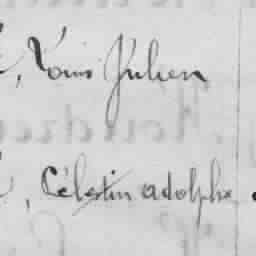 , Louis Julien
, Célestin adolphe